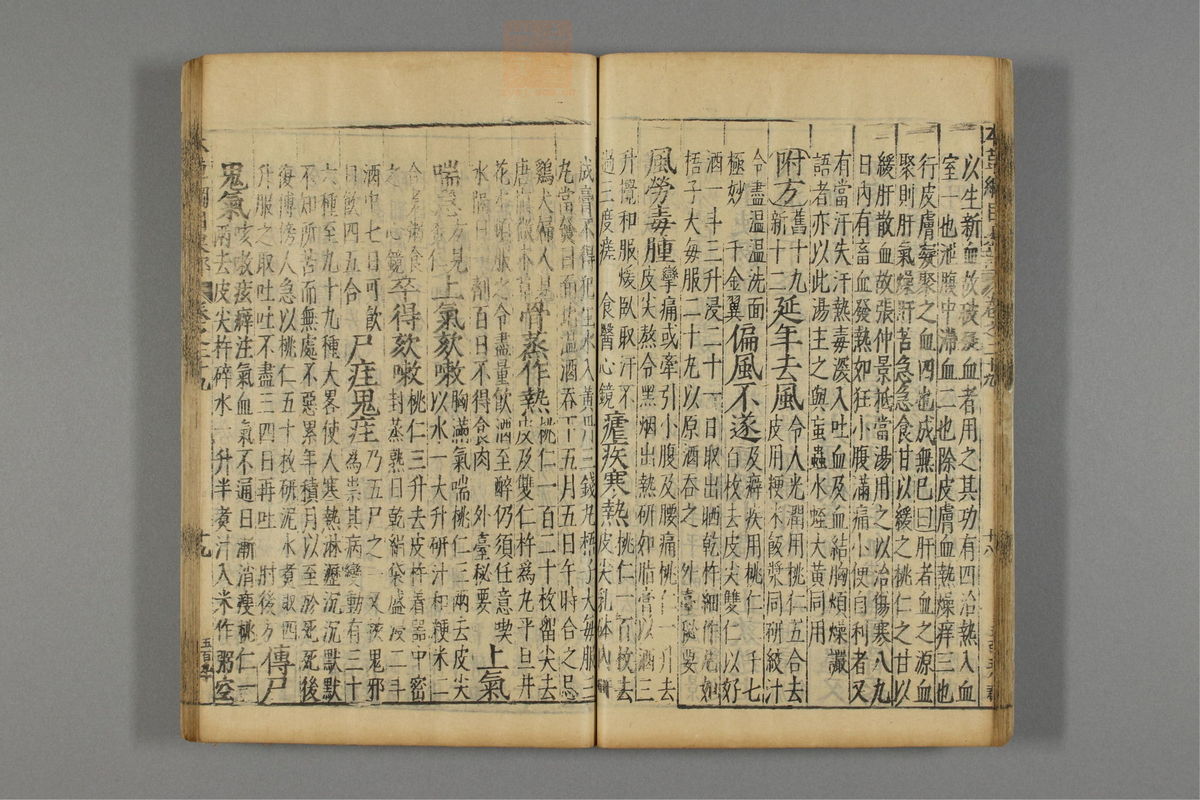 以生新血故破凝血者用之其功有四治熱入血
室一也泄腹中滯血二也除皮膚血熱燥痒三也
行皮膚凝聚之血四也成無已曰肝者血之源血
聚則肝氣燥肝苦急急食甘以緩之桃仁之甘以
緩肝散血故張仲景抵當湯用之以治傷寒八九
日內有畜血發熱如狂小腹滿痛小便自利者又
有當汗失汗熱毒深入吐血及血結胸煩燥讝
語者亦以此湯主之與䖟蟲水蛭大黃同用
附方舊十九新十二延年去風令人光潤用桃仁五合去皮用粳米飯漿同研絞汁
令盡溫溫洗面極妙千金翼偏風不遂及癖疾用桃仁二千七百枚去皮尖雙仁以好
酒一斗三升浸二十一日取出晒乾杵細作丸如
梧子大每服二十九以原酒吞之外臺秘要
風勞毒腫攣痛或牽引小腹及腰痛桃仁一升去皮尖熬令黑烟出熱研如脂膏以酒三
升攪和服煖臥取汗不過三度瘥食醫心鏡瘧疾寒熱桃仁一百枚去皮尖乳鉢內
成膏不得犯生水入黃丹三錢丸梧子大每服三
丸當發日面北溫酒吞下五月五日午時合之忌
雞犬婦人見 骨蒸作熱桃仁一百二十枚留尖去皮及雙仁杵爲丸平旦井
花水頓服之令盡量飲酒至醉仍須任意喫
水隔日一劑百日不得食肉 外臺秘要 上氣
喘急 上氣欬嗽胸滿氣喘桃仁三兩去皮尖以水一大升研汁和粳米二
合煮粥食之心鏡卒得欬嗽桃仁三升去皮杵着器中密封蒸熟日乾絹袋盛浸二斗
酒中七日可飲日飲四五合 尸疰鬼疰乃五尸之一又挾鬼邪爲祟其病變動有三十
六種至九十九種大畧使人寒熱淋瀝沉沉默默
不知所苦而無處不惡累年積月以至於死死後
復傳傍人急以桃仁五十枚研泥水煮取四
升服之取吐吐不盡三四日再吐肘後方傳尸
鬼氣咳嗽痃癖注氣血氣不通日漸消瘦桃仁一兩去皮尖杵碎水一升半煮汁入米作粥空